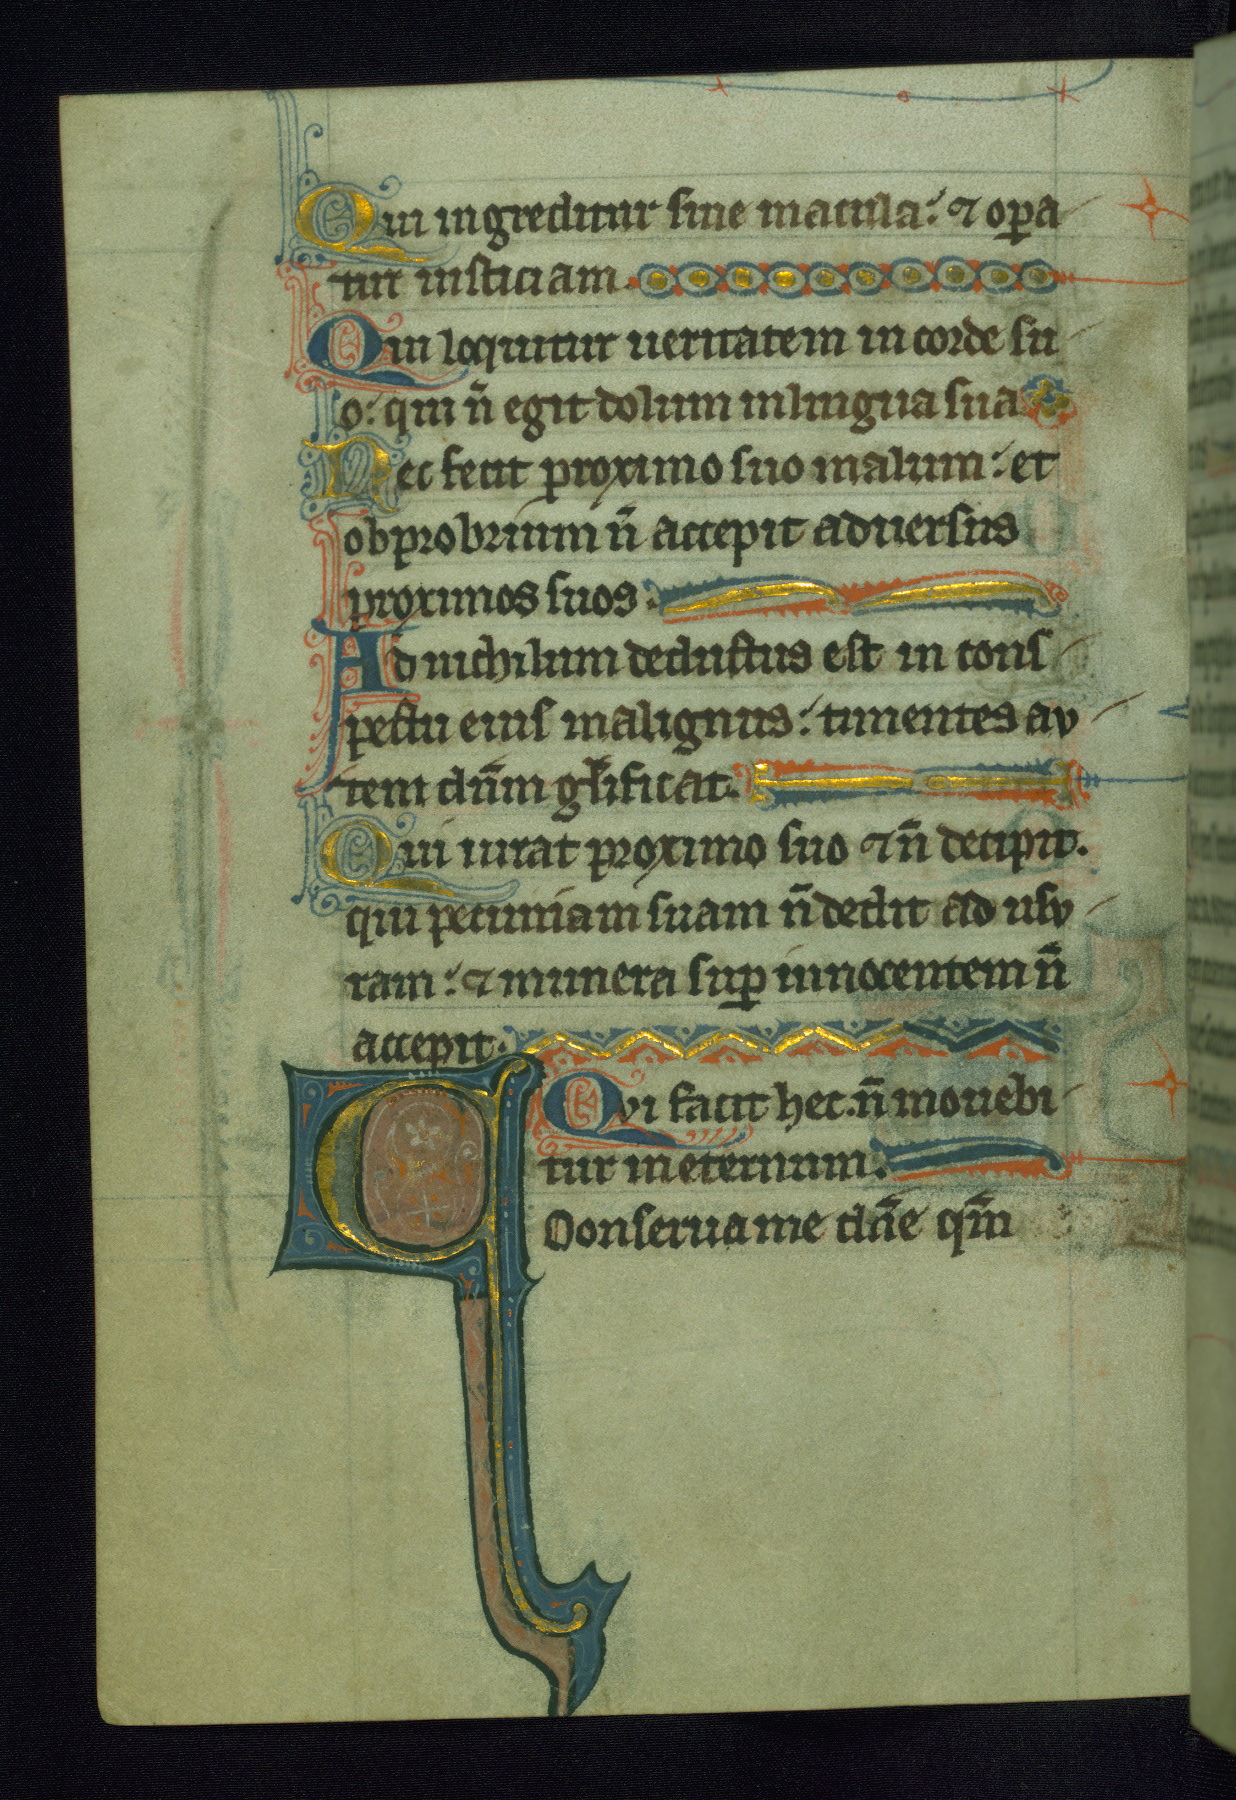 Qui ingreditur sine macula: ⁊ opa
tur iusticiam.
Qui loquitur ueritatem in corde su
o: qui ñ egit dolum in lingua sua
Nec fecit proximo suo malum: et
obprobrium ñ accepit aduersus
proximos suos.
Ad nichilum deductus est in cons
pectu eius malignus: timentes av
tem dñm gl̃ificat.
Qui iurat proximo suo ⁊ ñ decipit.
qui pecuniam suam ñ dedit ad usv
ram: ⁊ munera sup innocentem ñ
accepit.
Qvi facit hec. ñ mouebi
tur in eternum.
Conserua me dñe qm̃